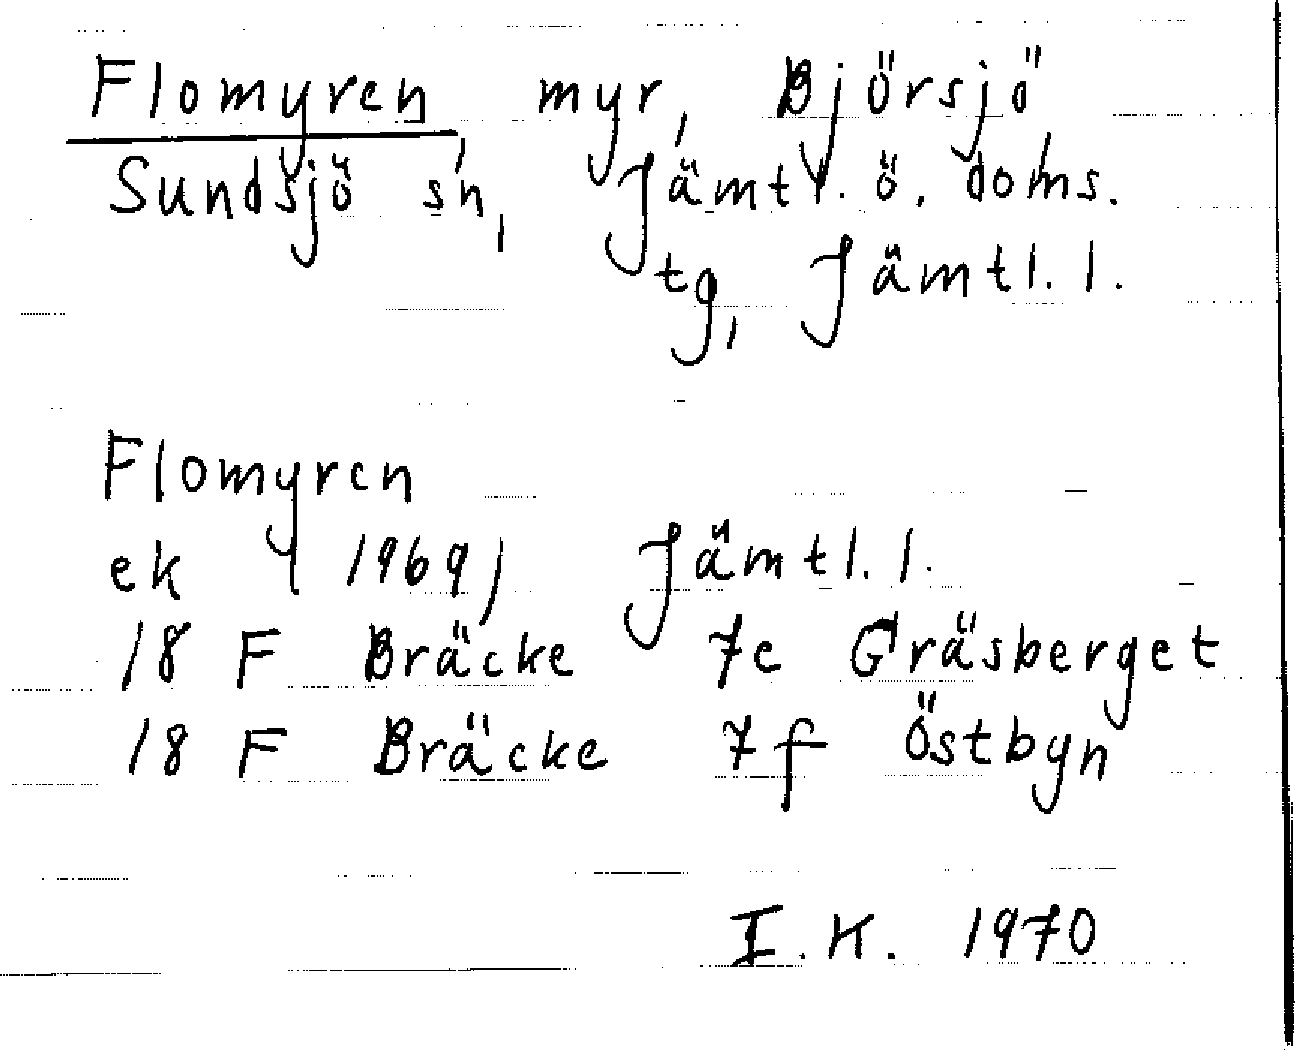 Flomyren, myr, Björsjö,
Sundsjö sn, Jämtl. ö. doms.
tg, Jämtl. l.
Flomyren
ek 1969; Jämtl. l.
18 F Bräcke 7e Gräsberget
18 F Bräcke 7f Östbyn
I.K. 1970